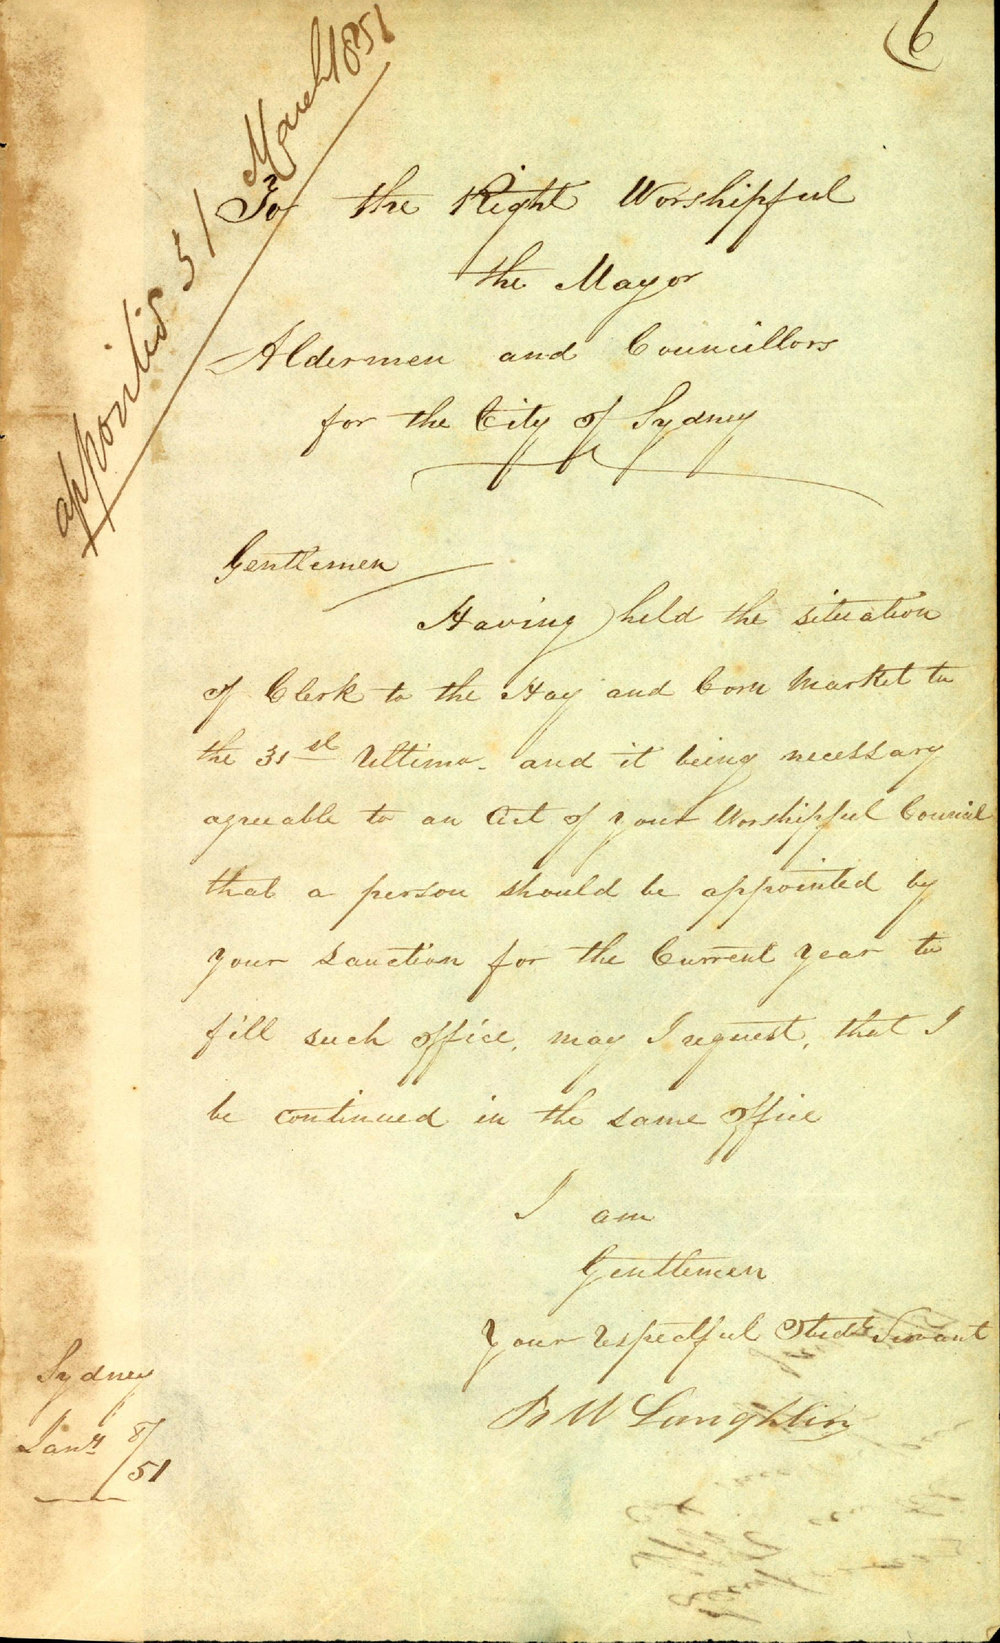 6
appointed 31 March 1851
To the Right Worshipful
the Mayor
Aldermen and Councillors
for the City of Sydney
Gentlemen
Having held the situation
of Clerk to the Hay and Corn Market to
the 31st Ultimo - and it being necessary
agreeable to an Act of your Worshipful Council
that a person should be appointed by
your sanction for the Current year to
fill such office, may I request, that I
be continued in the same office
I am
Gentlemen
Your respectful Obedt Servant
Laughlin
Sydney
Jany 8/51